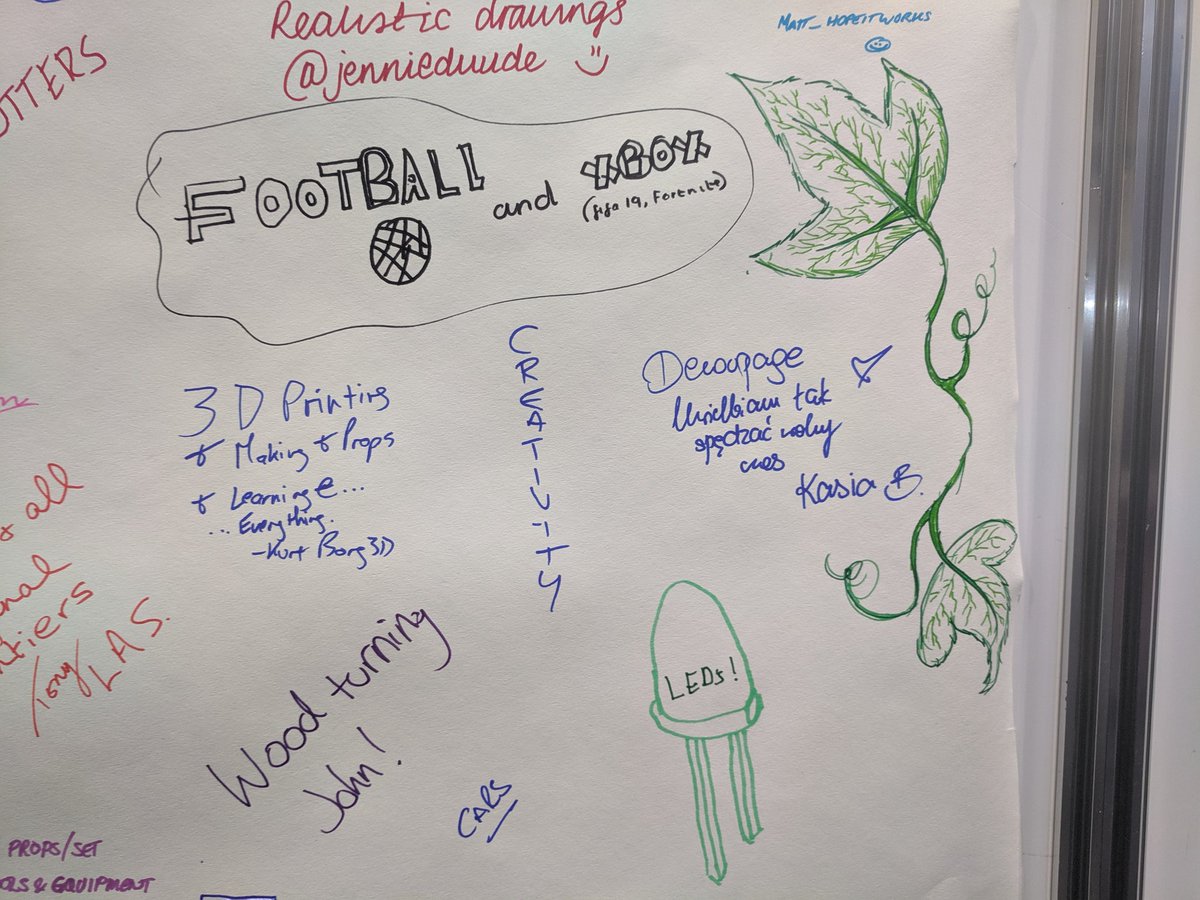 Realistic drawings
@jennieduude
MATT_HOPEITWORKS
FOOTBALL and XBOX
(fifa 19, Fortnite)
3D Printing
Making + Props
Learning
... Everything.
- Kurt Borg 3D
CREATIVITY
Decoupage
Uwielbiam tak
spędzać wolny
czas
Kasia B.
all
Tony LAS.
Wood turning
John!
LEDs!
CARS
PROPS/SET
& EQUIPMENT